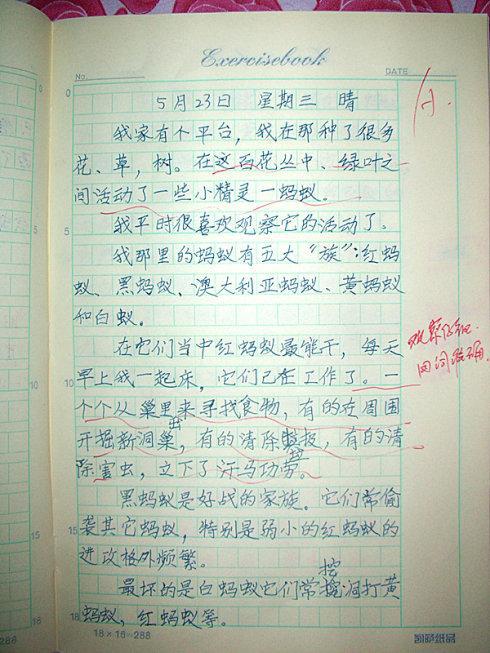 Exercisebook
No.
DATE
5月23日 星期三 晴
我家有个平台，我在那种了很多
花、草，树。在这百花丛中、绿叶之
间活动了一些小精灵—蚂蚁。
我平时很喜欢观察它的活动了。
我那里的蚂蚁有五大“族”：红蚂
蚁、黑蚂蚁、澳大利亚蚂蚁、黄蚂蚁
和白蚁。
在它们当中红蚂蚁最能干，每天
早上我一起床，它们已在工作了。一
个个从巢里出来寻找食物，有的在周围
开掘新洞巢，有的清除垃圾，有的清
除害虫，立下了汗马功劳。
黑蚂蚁是好战的家族。它们常偷
袭其它蚂蚁，特别是弱小的红蚂蚁的
进攻格外频繁。
最坏的是白蚂蚁它们常挖洞打黄
蚂蚁，红蚂蚁等。
0
5
10
15
18
18×16=288